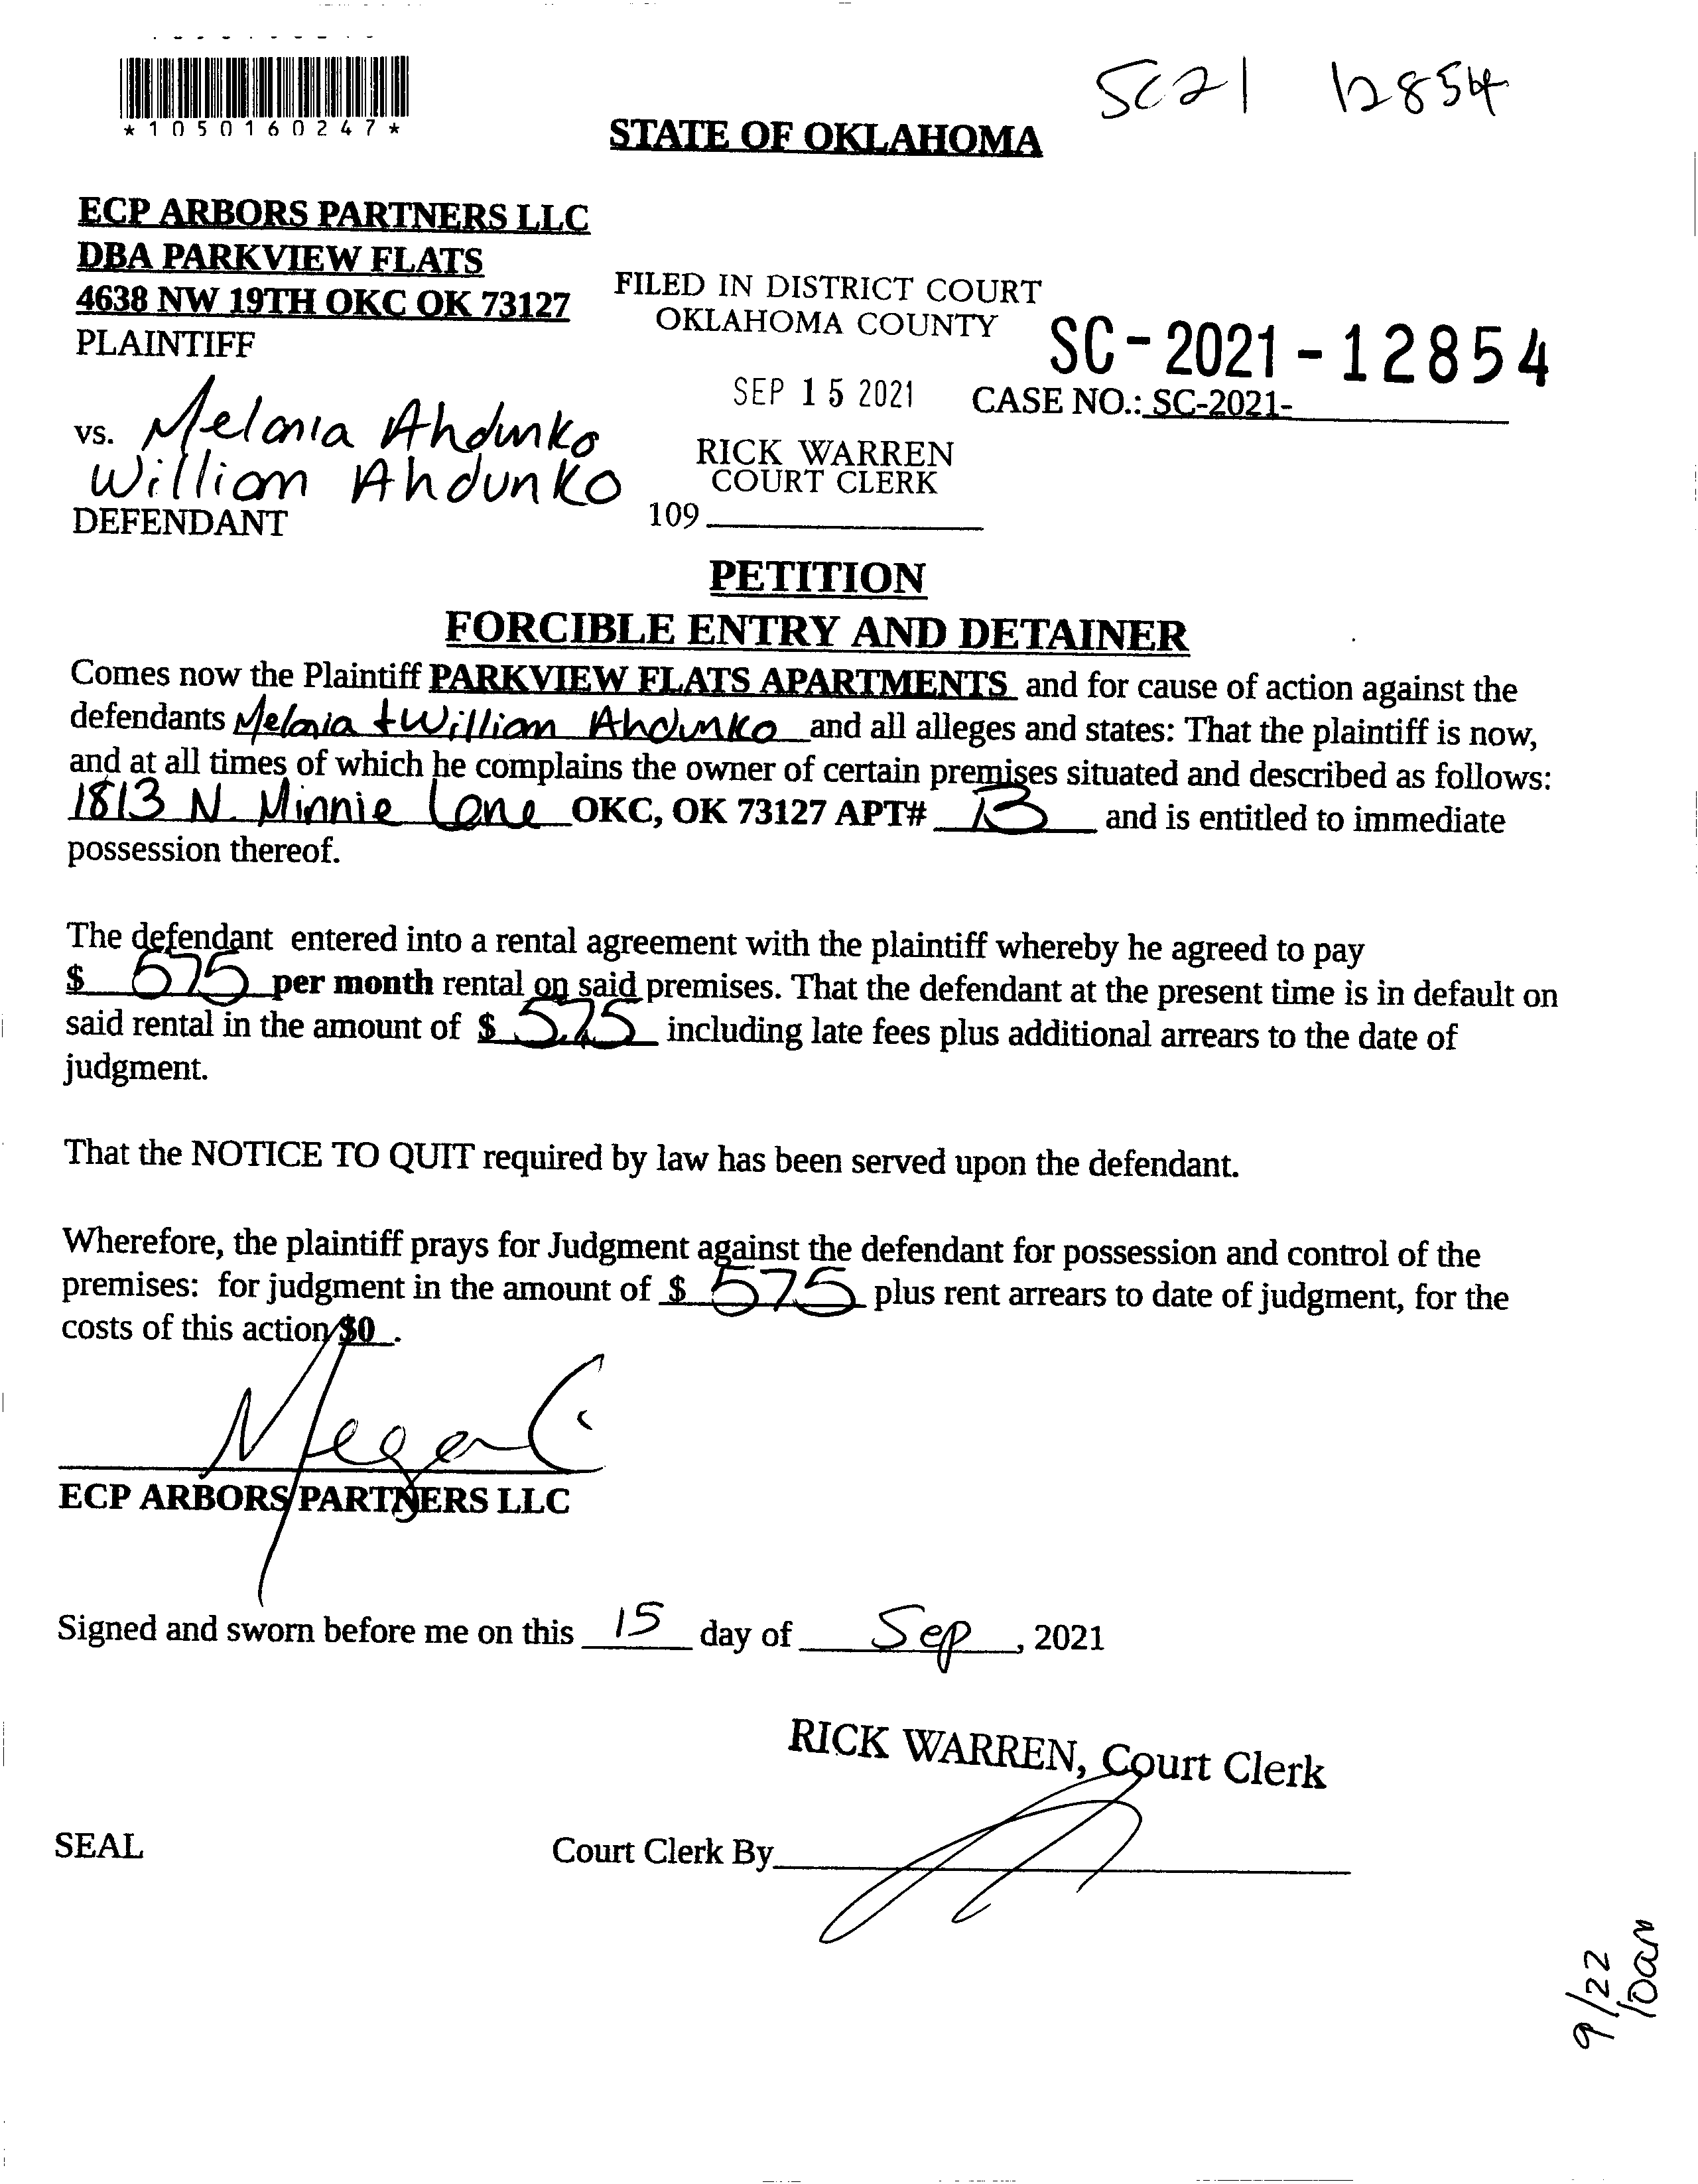 SC21 12854
*1050160247*
STATE OF OKLAHOMA
ECP ARBORS PARTNERS LLC
DBA PARKVIEW FLATS
4638 NW 19TH OKC OK 73127
PLAINTIFF
FILED IN DISTRICT COURT
OKLAHOMA COUNTY
SC-2021-12854
SEP 15 2021
CASE NO.: SC-2021-
vs. Melania Ahdunko
William Ahdunko
DEFENDANT
RICK WARREN
COURT CLERK
109
PETITION
FORCIBLE ENTRY AND DETAINER
Comes now the Plaintiff PARKVIEW FLATS APARTMENTS and for cause of action against the
defendants Melania + William Ahdunko and all alleges and states: That the plaintiff is now,
and at all times of which he complains the owner of certain premises situated and described as follows:
1813 N. Minnie Lane OKC, OK 73127 APT# and is entitled to immediate
possession thereof.
The defendant entered into a rental agreement with the plaintiff whereby he agreed to pay
$ 575 per month rental on said premises. That the defendant at the present time is in default on
said rental in the amount of $ 575 including late fees plus additional arrears to the date of
judgment.
That the NOTICE TO QUIT required by law has been served upon the defendant.
Wherefore, the plaintiff prays for Judgment against the defendant for possession and control of the
premises: for judgment in the amount of $ 575 plus rent arrears to date of judgment, for the
costs of this action $0 .
Megan C
ECP ARBORS PARTNERS LLC
Signed and sworn before me on this 15 day of Sep, 2021
RICK WARREN, Court Clerk
SEAL
Court Clerk By
9/22
10am